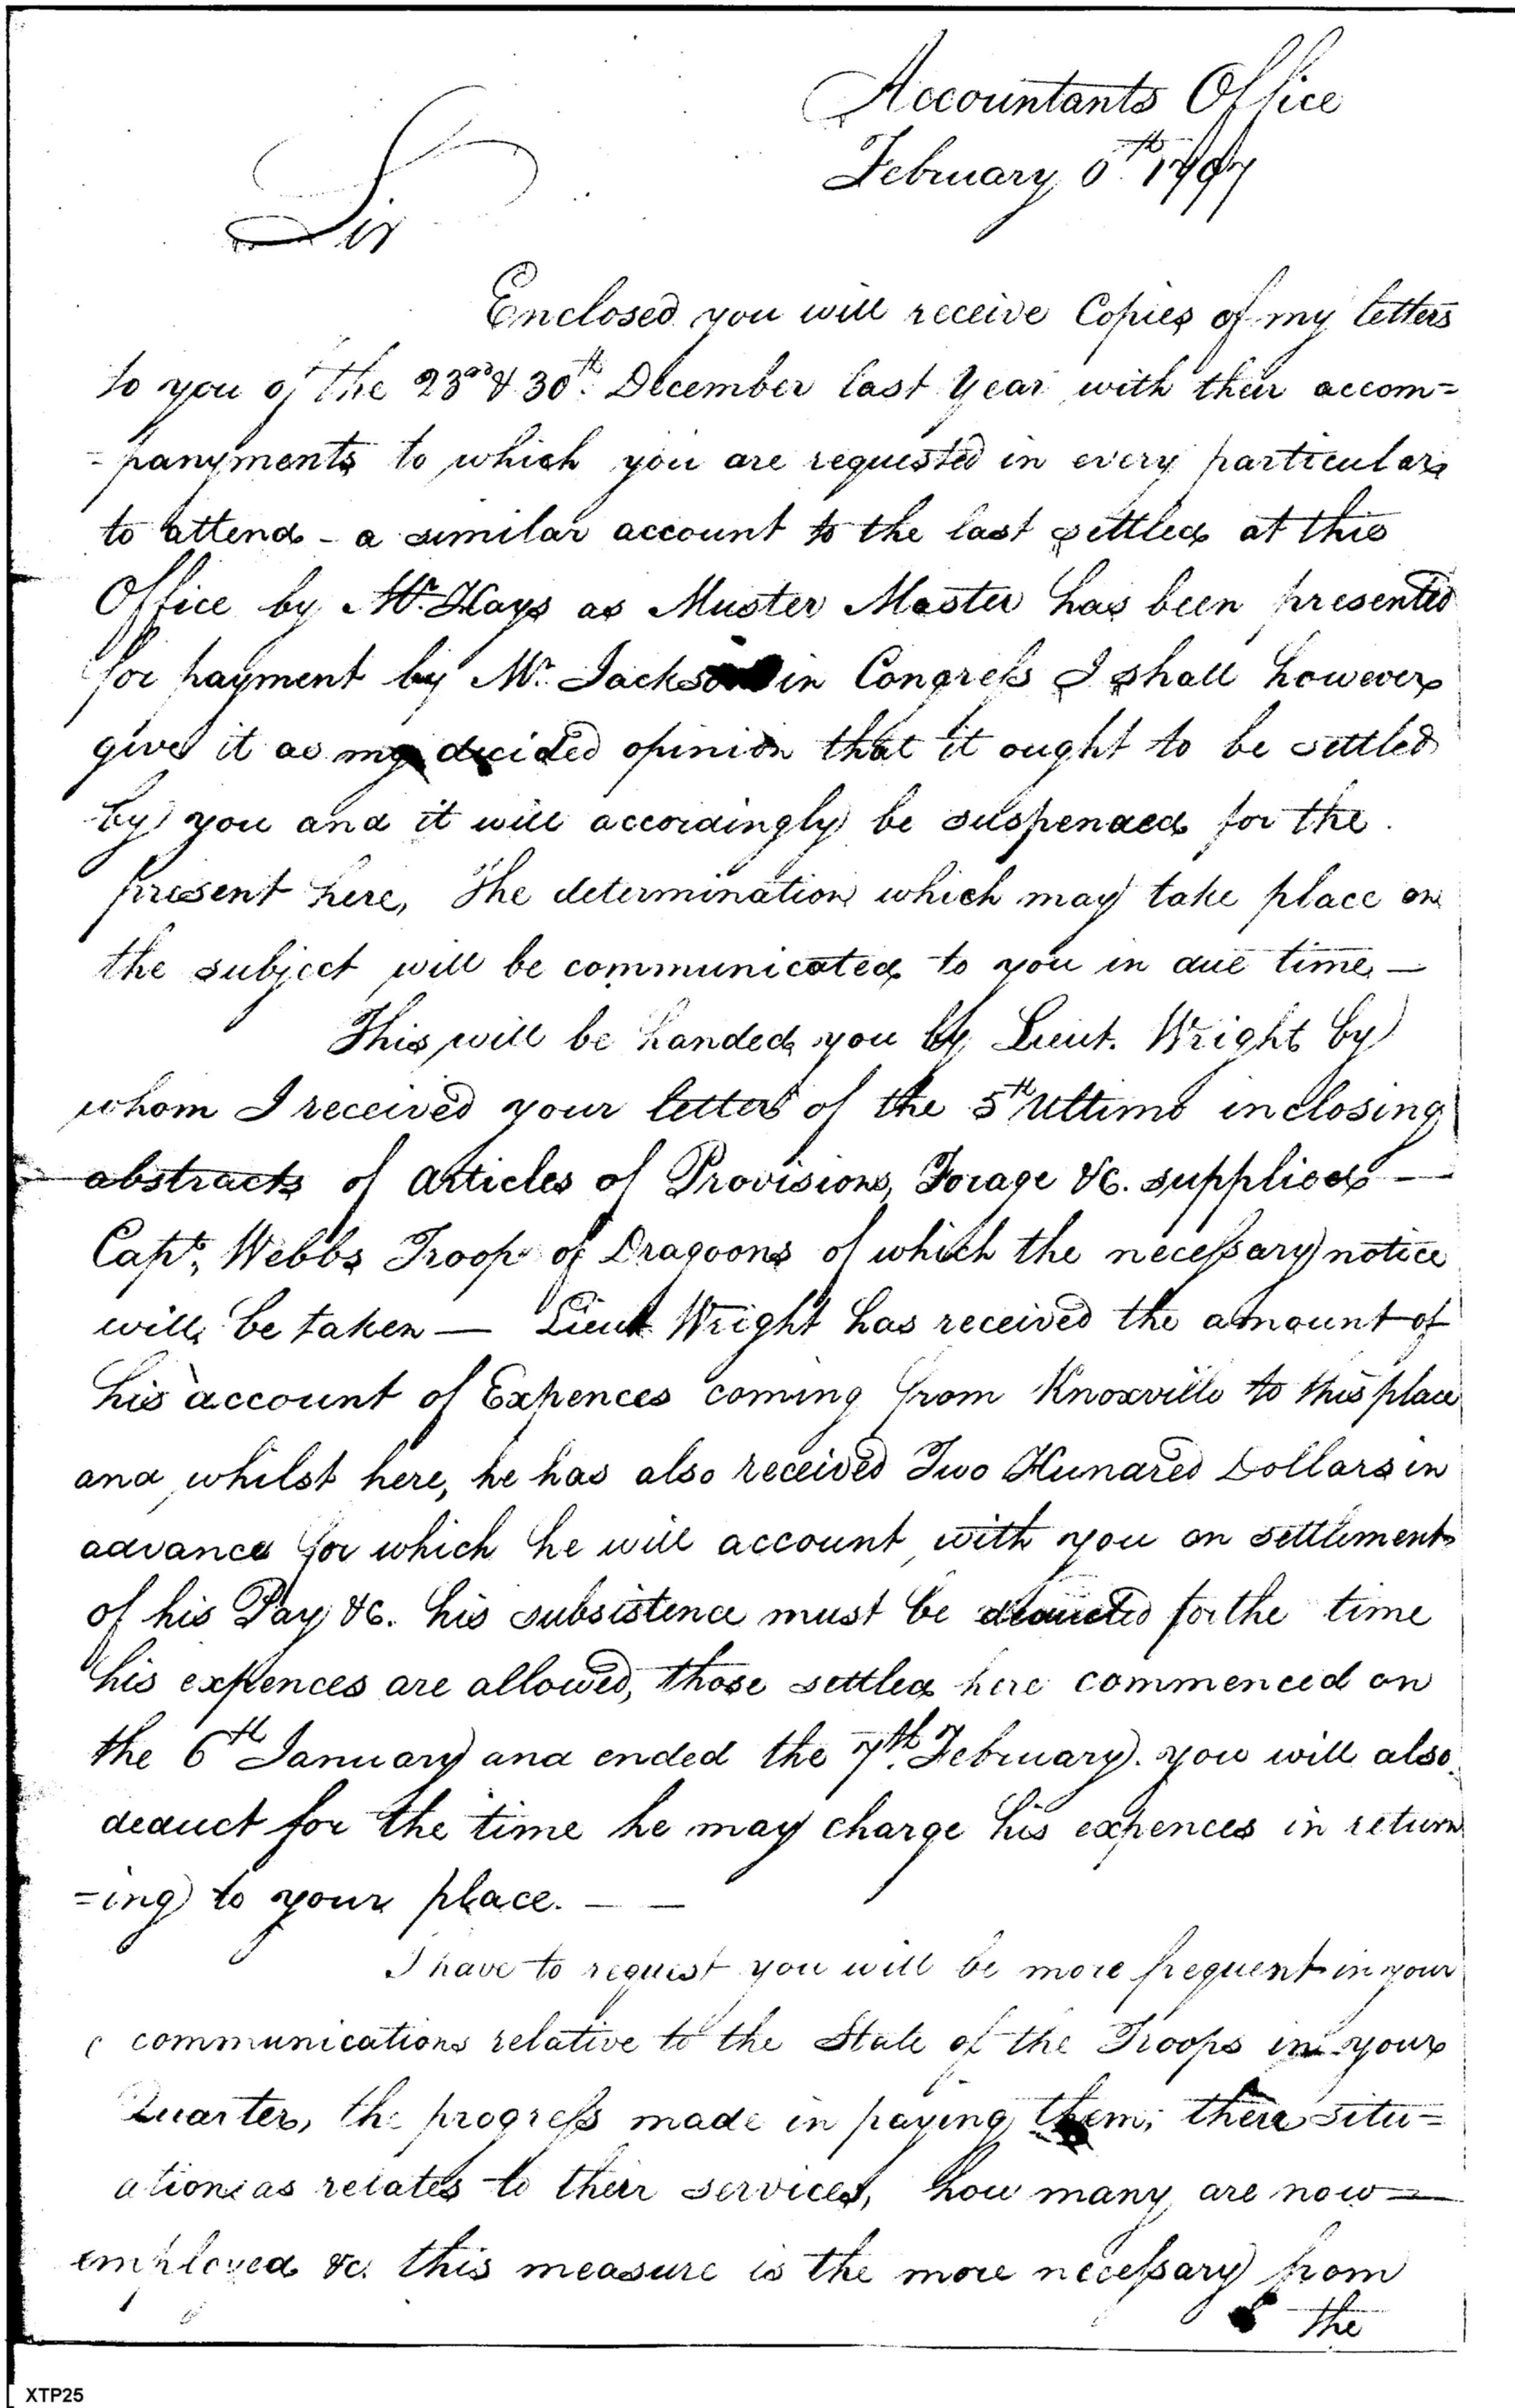 Accountants Office
February th 1797
Sir
Enclosed you will receive Copies of my letters
to you of the 23rd & 30th December last Year with their accom=
=panyments to which you are requested in every particular
to attend - a similar account to the last settled at this
Office by Mr. Hays as Muster Master has been presented
for payment by Mr. Jackson in Congress I shall however
give it as my decided opinion that it ought to be settled
by you and it will accordingly be suspended for the
present here, The determination which may take place on
the subject will be communicated to you in due time. —
This will be handed you by Lieut. Wright by
whom I received your letter of the 5th Ultimo inclosing
abstracts of Articles of Provisions, Forage &c. supplied —
Capt. Webbs Troop of Dragoons of which the necessary notice
will be taken — Lieut Wright has received the amount of
his account of Expences coming from Knoxville to this place
and whilst here, he has also received Two Hundred Dollars in
advance for which he will account with you on settlement
of his Pay &c. his subsistence must be deducted for the time
his expences are allowed, those settled here commenced on
the 6th January and ended the 7th February. you will also
deduct for the time he may charge his expences in return
=ing to your place. — —
I have to request you will be more frequent in your
communications relative to the State of the Troops in your
Quarter, the progress made in paying them; their situ=
ation as relates to their services, how many are now =
employed &c. this measure is the more necessary from
the
XTP25